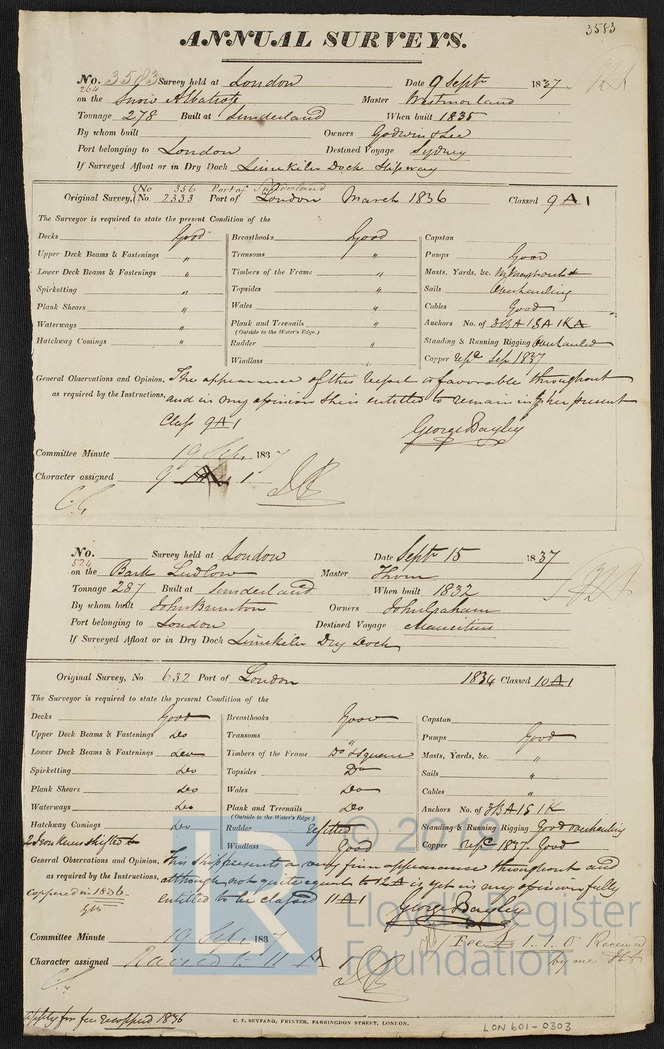 3583
ANNUAL SURVEYS.
No. 3583 Survey held at London Date 9 Sept 1837
264
on the Snow Albatross Master Westmorland
Tonnage 278 Built at Sunderland When built 1835
By whom built Owners Godwin & Lee
Port belonging to London Destined Voyage Sydney
If Surveyed Afloat or in Dry Dock Limekiln Dock Slipway
(No 356 Port of Sunderland
Original Survey, (No. 2333 Port of London March 1836 Classed 9 A 1
The Surveyor is required to state the present Condition of the
Decks Good Breasthooks Good Capstan
Upper Deck Beams & Fastenings " Transoms " Pumps Good
Lower Deck Beams & Fastenings " Timbers of the Frame " Masts, Yards, &c.
Spirketting " Topsides " Sails Overhauling
Plank Shears " Wales " Cables Good
Waterways " Plank and Treenails " Anchors No. of 3BA 1SA 1KA
(Outside to the Water's Edge.)
Hatchway Comings " Rudder " Standing & Running Rigging Overhauled
Windlass " Copper Sep 1837
General Observations and Opinion, The appearance of this Vessel is favorable throughout
as required by the Instructions, and in my opinion she is entitled to remain in her present
Class 9A1
George Bayley
Committee Minute 19 Sep. 1837
Character assigned 9 A 1
No. Survey held at London Date Sept 15 1837
524
on the Bark Ludlow Master Thom
Tonnage 287 Built at Sunderland When built 1832
By whom built John Brunton Owners John Graham
Port belonging to London Destined Voyage Mauritius
If Surveyed Afloat or in Dry Dock Limekiln Dry Dock
Original Survey, No 632 Port of London 1834 Classed 10A1
The Surveyor is required to state the present Condition of the
Decks Good Breasthooks Good Capstan
Upper Deck Beams & Fastenings Do Transoms " Pumps Good
Lower Deck Beams & Fastenings Do Timbers of the Frame Do Masts, Yards, &c. "
Spirketting Do Topsides Do Sails "
Plank Shears Do Wales Do Cables "
Waterways Do Plank and Treenails Do Anchors No. of 3BA 1S 1K
(Outside to the Water's Edge.)
Hatchway Comings Do Rudder Refitted Standing & Running Rigging Good overhauling
Windlass Good Copper 1837 Good
General Observations and Opinion, This Ship presents a very firm appearance throughout and
as required by the Instructions, although not quite equal to 12A is yet in my opinion fully
coppered in 1836 entitled to be classed 11A1
George Bayley
Committee Minute 19 Sep. 1837
Fee £ 1.1.0 Received
by me
Character assigned Raised to 11 A 1
apply for fee 1836
C. F. SEYFANG, PRINTER, FARRINGDON STREET, LONDON.
LON 601-0303
© 2018
Lloyd's Register
Foundation
LR